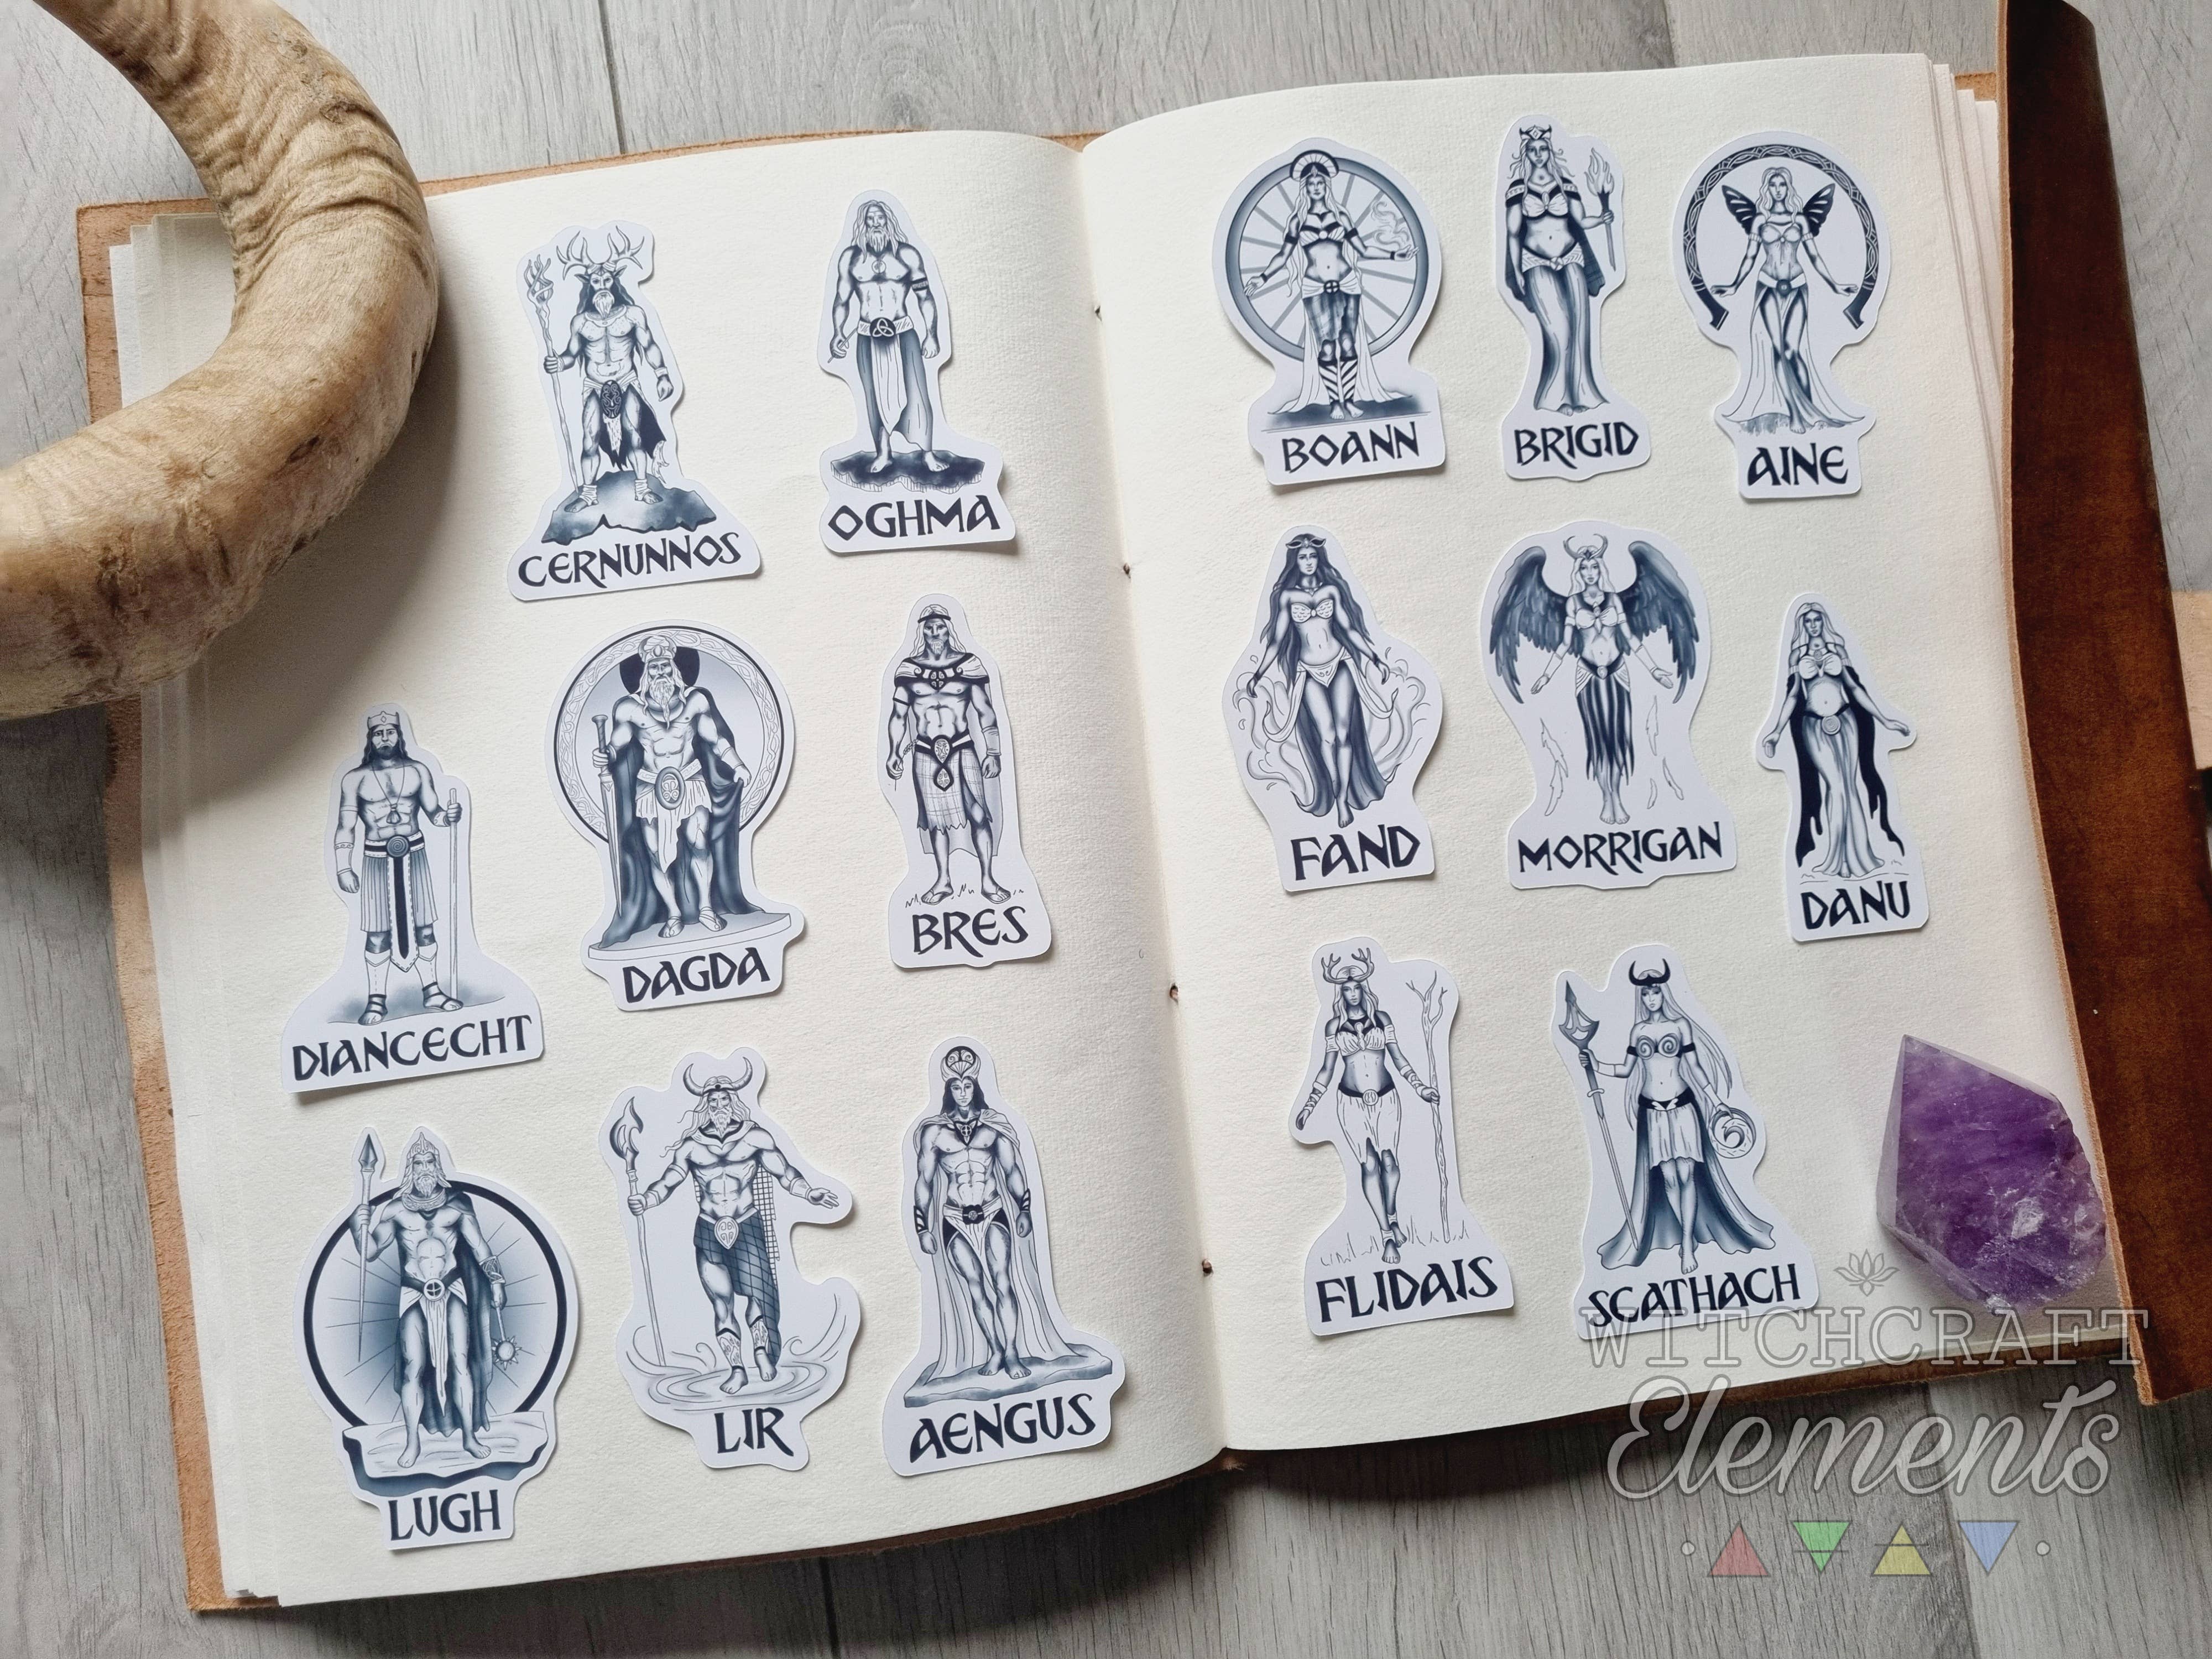 CERNUNNOS
OGHMA
DIANCECHT
DAGDA
BRES
LUGH
LIR
AENGUS
BOANN
BRIGID
AINE
FAND
MORRIGAN
DANU
FLIDAIS
SCATHACH
WITCHCRAFT
Elements